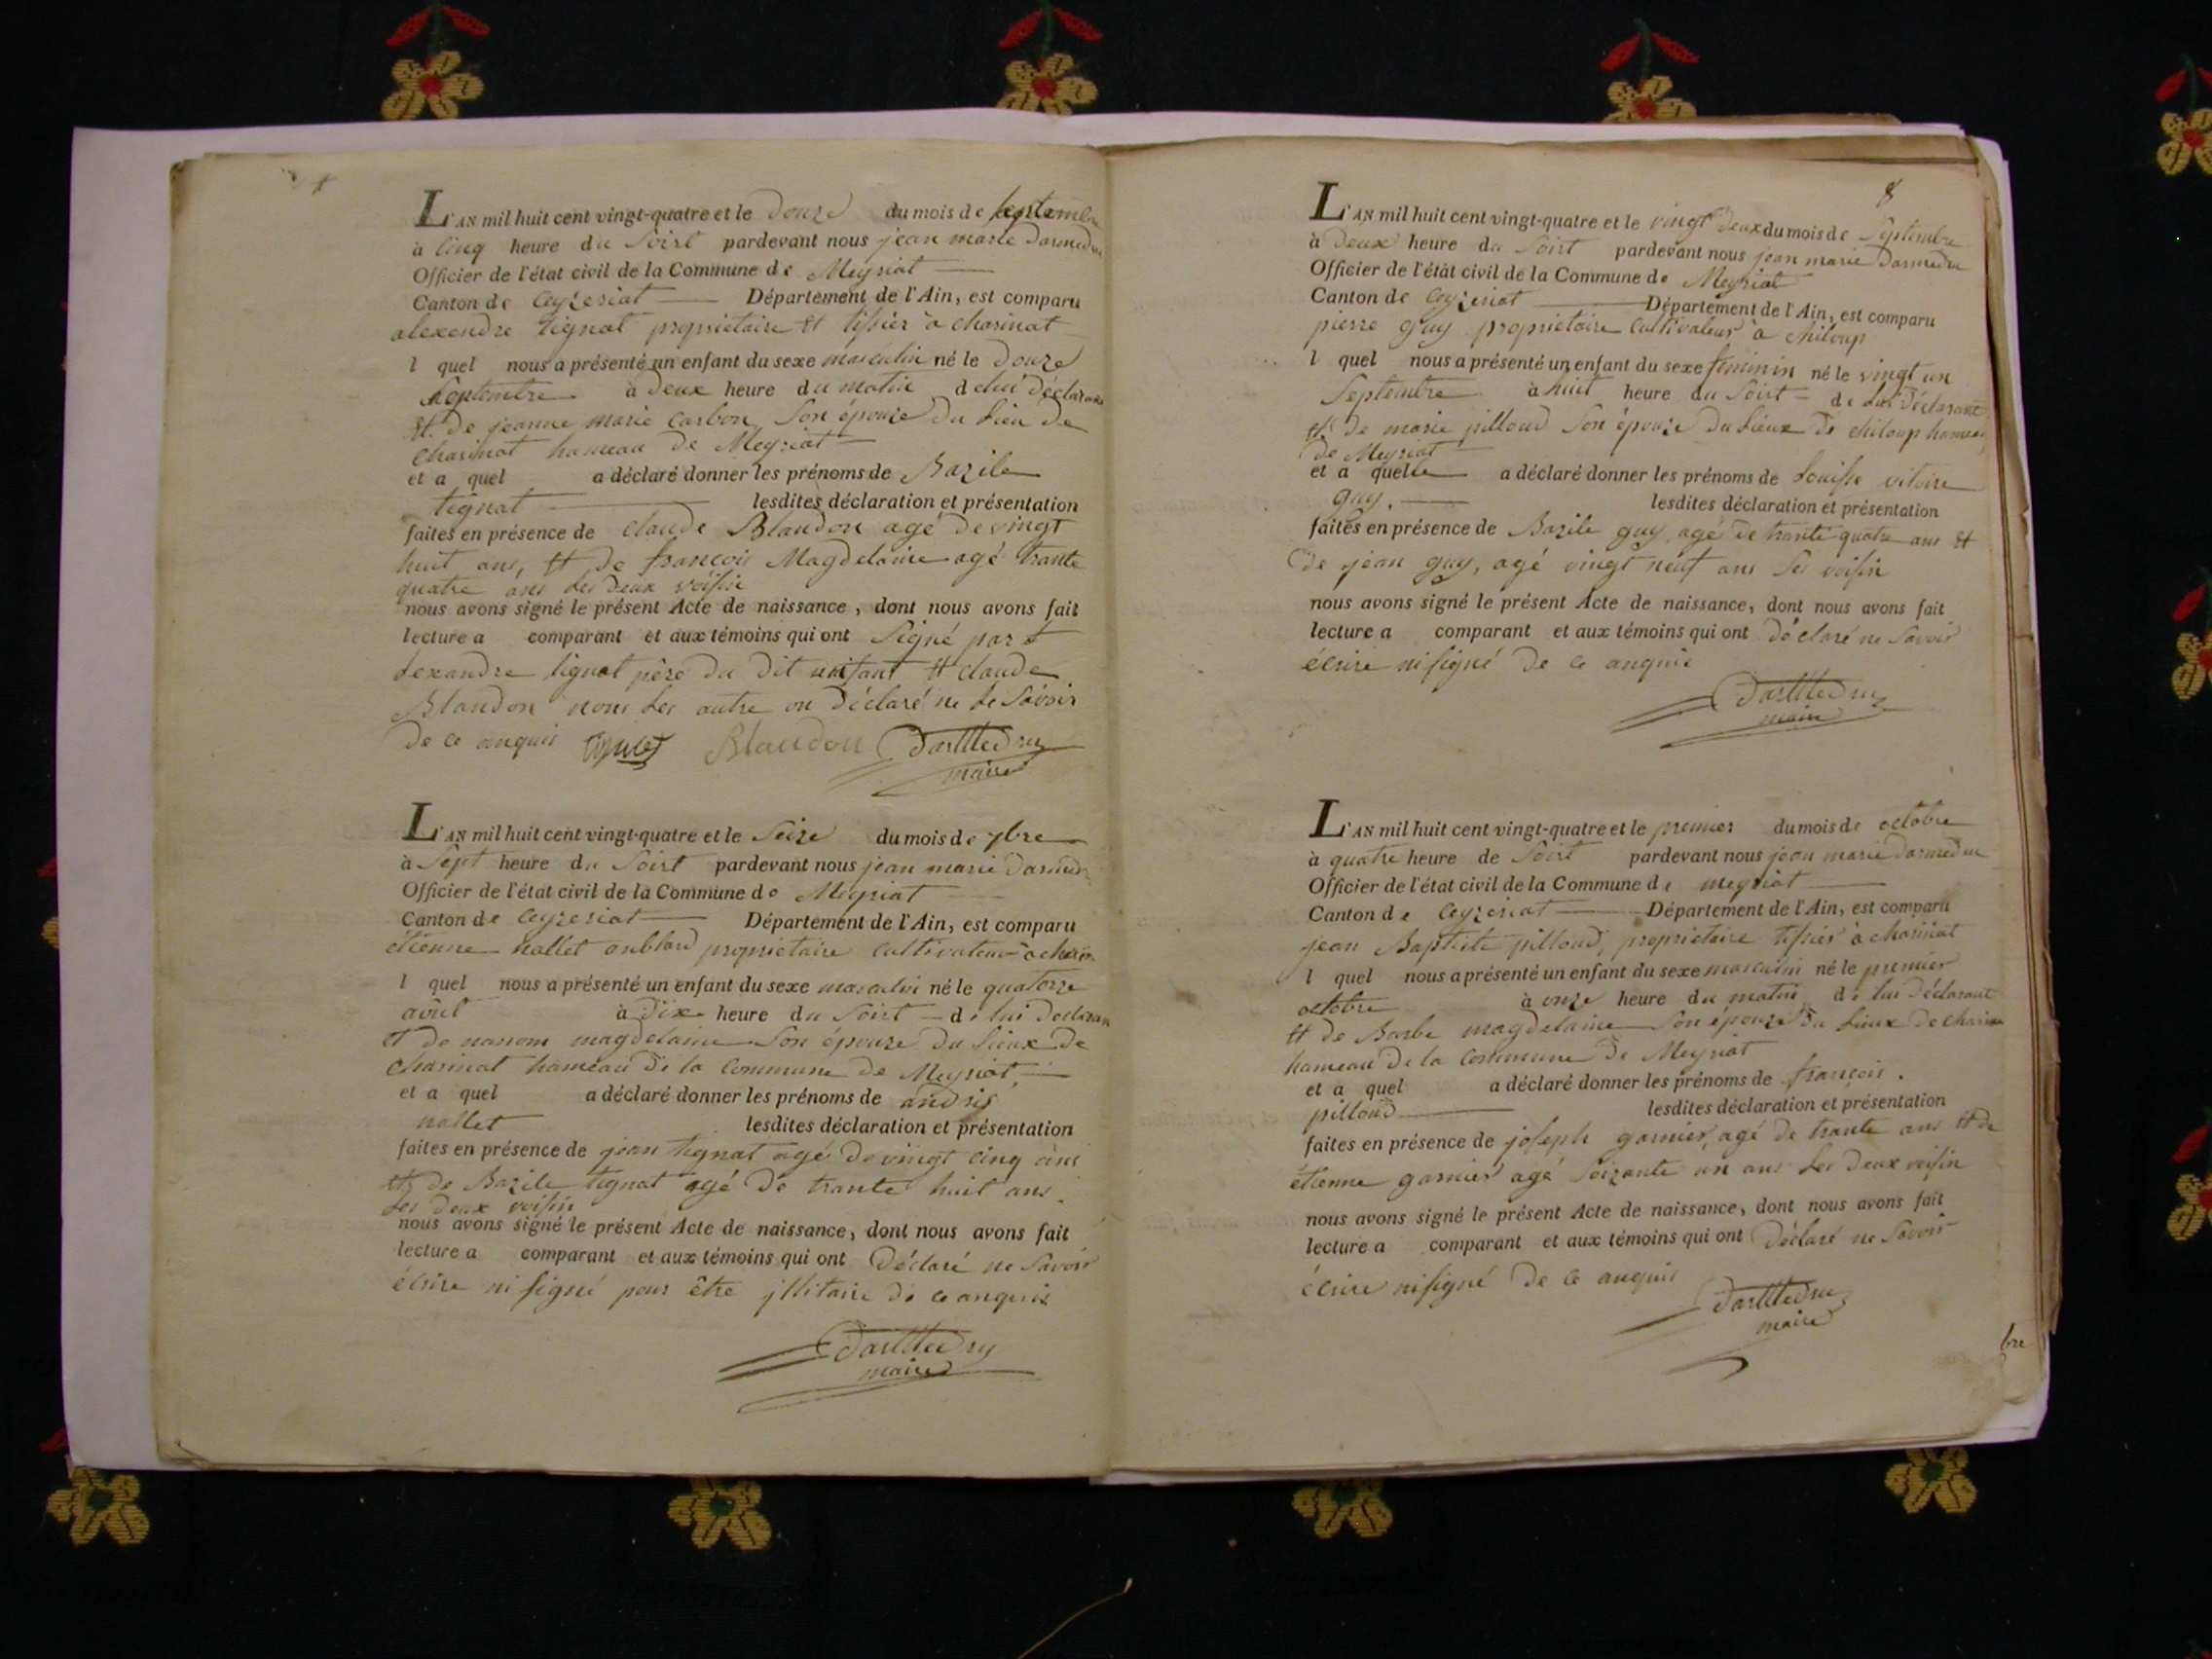 L'AN mil huit cent vingt-quatre et le Douze du mois de septembre
à Cinq heure du Soirt pardevant nous jean marie Darmedru
Officier de l'état civil de la Commune de Meyriat
Canton de Ceyzeriat Département de l'Ain, est comparu
alexendre tignat proprietaire et tissier à charinat
l quel nous a présenté un enfant du sexe masculin né le Douze
Septembre à Deux heure du matin de lui Déclarant
et de jeanne marie Carbon Son épouze du Lieu de
charinat hameau de Meyriat
et a quel a déclaré donner les prénoms de Bazile
tignat lesdites déclaration et présentation
faites en présence de Claude Blandon agé de vingt
huit ans, et de françois Magdelaine agé trante
quatre ans les Deux voisin
nous avons signé le présent Acte de naissance, dont nous avons fait
lecture a comparant et aux témoins qui ont Signé part
Lexandre tignat père du dit enfant et claude
Blandon nons les autre on Déclaré ne le Savoir
De ce anquis tignat Blandon Darmedru
maire
L'AN mil huit cent vingt-quatre et le Seize du mois de 7bre
à Sept heure du Soirt pardevant nous jean marie Darmedru
Officier de l'état civil de la Commune de Meyriat
Canton de Ceyzeriat Département de l'Ain, est comparu
étienne nallet proprietaire cultivateur à
l quel nous a présenté un enfant du sexe masculin né le quatorze
août à Dix heure du Soirt de lui Declarant
et de nanom magdelaine Son épouze du Lieux de
charinat hameau de la Commune de Meyriat
et a quel a déclaré donner les prénoms de andrié
nallet lesdites déclaration et présentation
faites en présence de jean tignat agé de vingt cinq ans
et de Bazile tignat agé de trante huit ans.
Les Deux voisin
nous avons signé le présent Acte de naissance, dont nous avons fait
lecture a comparant et aux témoins qui ont Déclaré ne Savoir
écrire ni signé pour être jllitaire de ce anquis
Darmedru
maire
8
L'AN mil huit cent vingt-quatre et le vingt Deux du mois de Septembre
à Deux heure du Soirt pardevant nous jean marie Darmedru
Officier de l'état civil de la Commune de Meyriat
Canton de Ceyzeriat Département de l'Ain, est comparu
pierre guy proprietaire Cultivateur à chiloup
l quel nous a présenté un enfant du sexe feminin né le vingt un
Septembre à huit heure du Soirt de lui Déclarant
et de marie pilloud Son épouze du Lieux de chiloup hameau
de Meyriat
et a quelle a déclaré donner les prénoms de Louisse vitoire
guy. lesdites déclaration et présentation
faites en présence de Bazile guy agé de trante quatre ans et
de jean guy, agé vingt neuf ans Les voisin
nous avons signé le présent Acte de naissance, dont nous avons fait
lecture a comparant et aux témoins qui ont Déclaré ne Savoir
écrire ni signé de ce anquis
Darmedru
maire
L'AN mil huit cent vingt-quatre et le premier du mois de octobre
à quatre heure de Soirt pardevant nous jean marie Darmedru
Officier de l'état civil de la Commune de meyriat
Canton de Ceyzeriat Département de l'Ain, est comparu
jean Baptiste pilloud, proprietaire tissier à charinat
l quel nous a présenté un enfant du sexe masculin né le premier
octobre à onze heure du matin de lui Déclarant
et de Barbe magdelaine Son épouze du Lieux de
hameau de la Commune de Meyriat
et a quel a déclaré donner les prénoms de françois.
pilloud lesdites déclaration et présentation
faites en présence de joseph garnier, agé de trante ans et de
étienne garnier agé Soizante un ans Les Deux voisin
nous avons signé le présent Acte de naissance, dont nous avons fait
lecture a comparant et aux témoins qui ont Déclaré ne Savoir
écrire ni signé de ce anquis
Darmedru
maire
bre